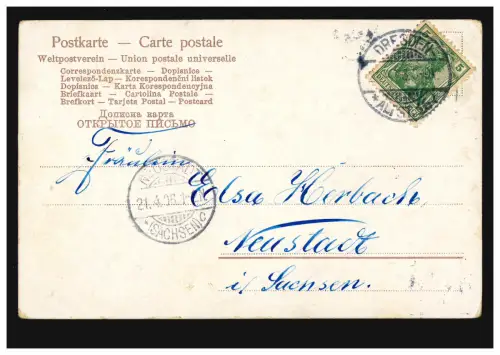 Postkarte — Carte postale
Weltpostverein — Union postale universelle
Correspondenskarte — Dopisnice —
Levelező-Lap — Korespondenční listek
Dopisnica — Karta Korespondencyjna
Briefkaart — Cartolina Postale —
Brefkort — Tarjeta Postal — Postcard
Дописна карта
ОТКРЫТОЕ ПИСЬМО
DRESDEN
ALTST.
5
Fräulein
Elsa Horbach,
Neustadt
i/ Sachsen.
NEUSTADT
21.4.06.
(SACHSEN)